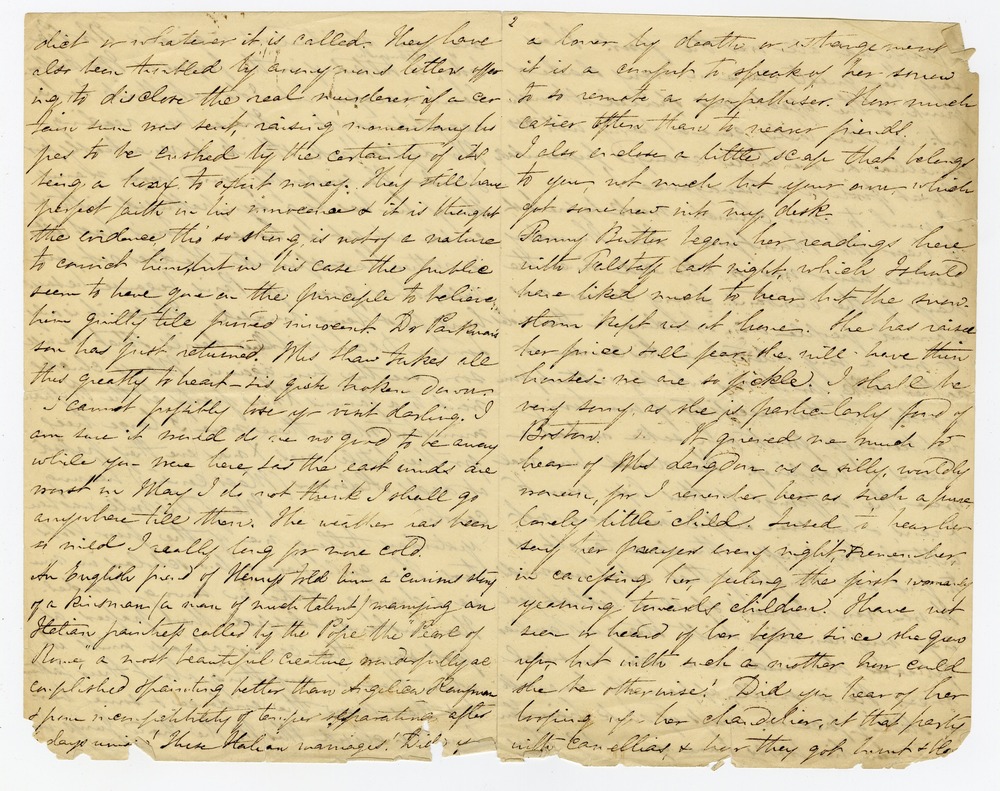 dict or whatever it is called. They have
also been troubled by anonymous letters offer
ing to disclose the real murderer if a cer
tain sum was sent, raising momentary ho
pes to be crushed by the certainty of its
being a hoax to extort money. They still have
perfect faith in his innocence & it is thought
the evidence tho' so strong is not of a nature
to convict him, but in his case the public
seem to have gone on the principle to believe
him guilty till proved innocent. Dr Parkman's
son has just returned. Mrs Shaw takes all
this greatly to heart - is quite broken down.
I cannot possibly lose yr visit darling. I
am sure it would do me no good to be away
while you were here, & as the east winds are
worst in May I do not think I shall go
anywhere till then. The weather has been
so mild I really long for more cold.
An English friend of Henry's told him a curious story
of a Kinsman (a man of much talent) marrying an
Italian paintress called by the Pope the "Pearl of
Rome, a most beautiful creature wonderfully ac
complished & painting better than Angelica Kaufman
& from incompatibility of temper separating after
days union! These Italian marriages! Did
2
a lover by death or estrangement
it is a comfort to speak of her sorrow
to so remote a sympathiser. How much
easier often than to nearer friends.
I also enclose a little scrap that belongs
to you not much but your own, which
got somehow into my desk.
Fanny Butler began her readings here
with Falstaff last night, which I should
have liked much to hear but the snow-
storm kept us at home. She has raised
her price & I fear she will have thin
houses - we are so fickle. I shall be
very sorry as she is particularly fond of
Boston. It grieved me much to
hear of Mrs Langdon as a silly, worldly
woman, for I remember her as such a pure
lovely little child. I used to hear her
say her prayers every night, & remember,
in caressing her, feeling the first womanly
yearning towards children. I have not
seen or heard of her before since she grew
up, but with such a mother how could
she be otherwise! Did you hear of her
looping up her chandelier, at that party
with Camellias, & how they got burnt &